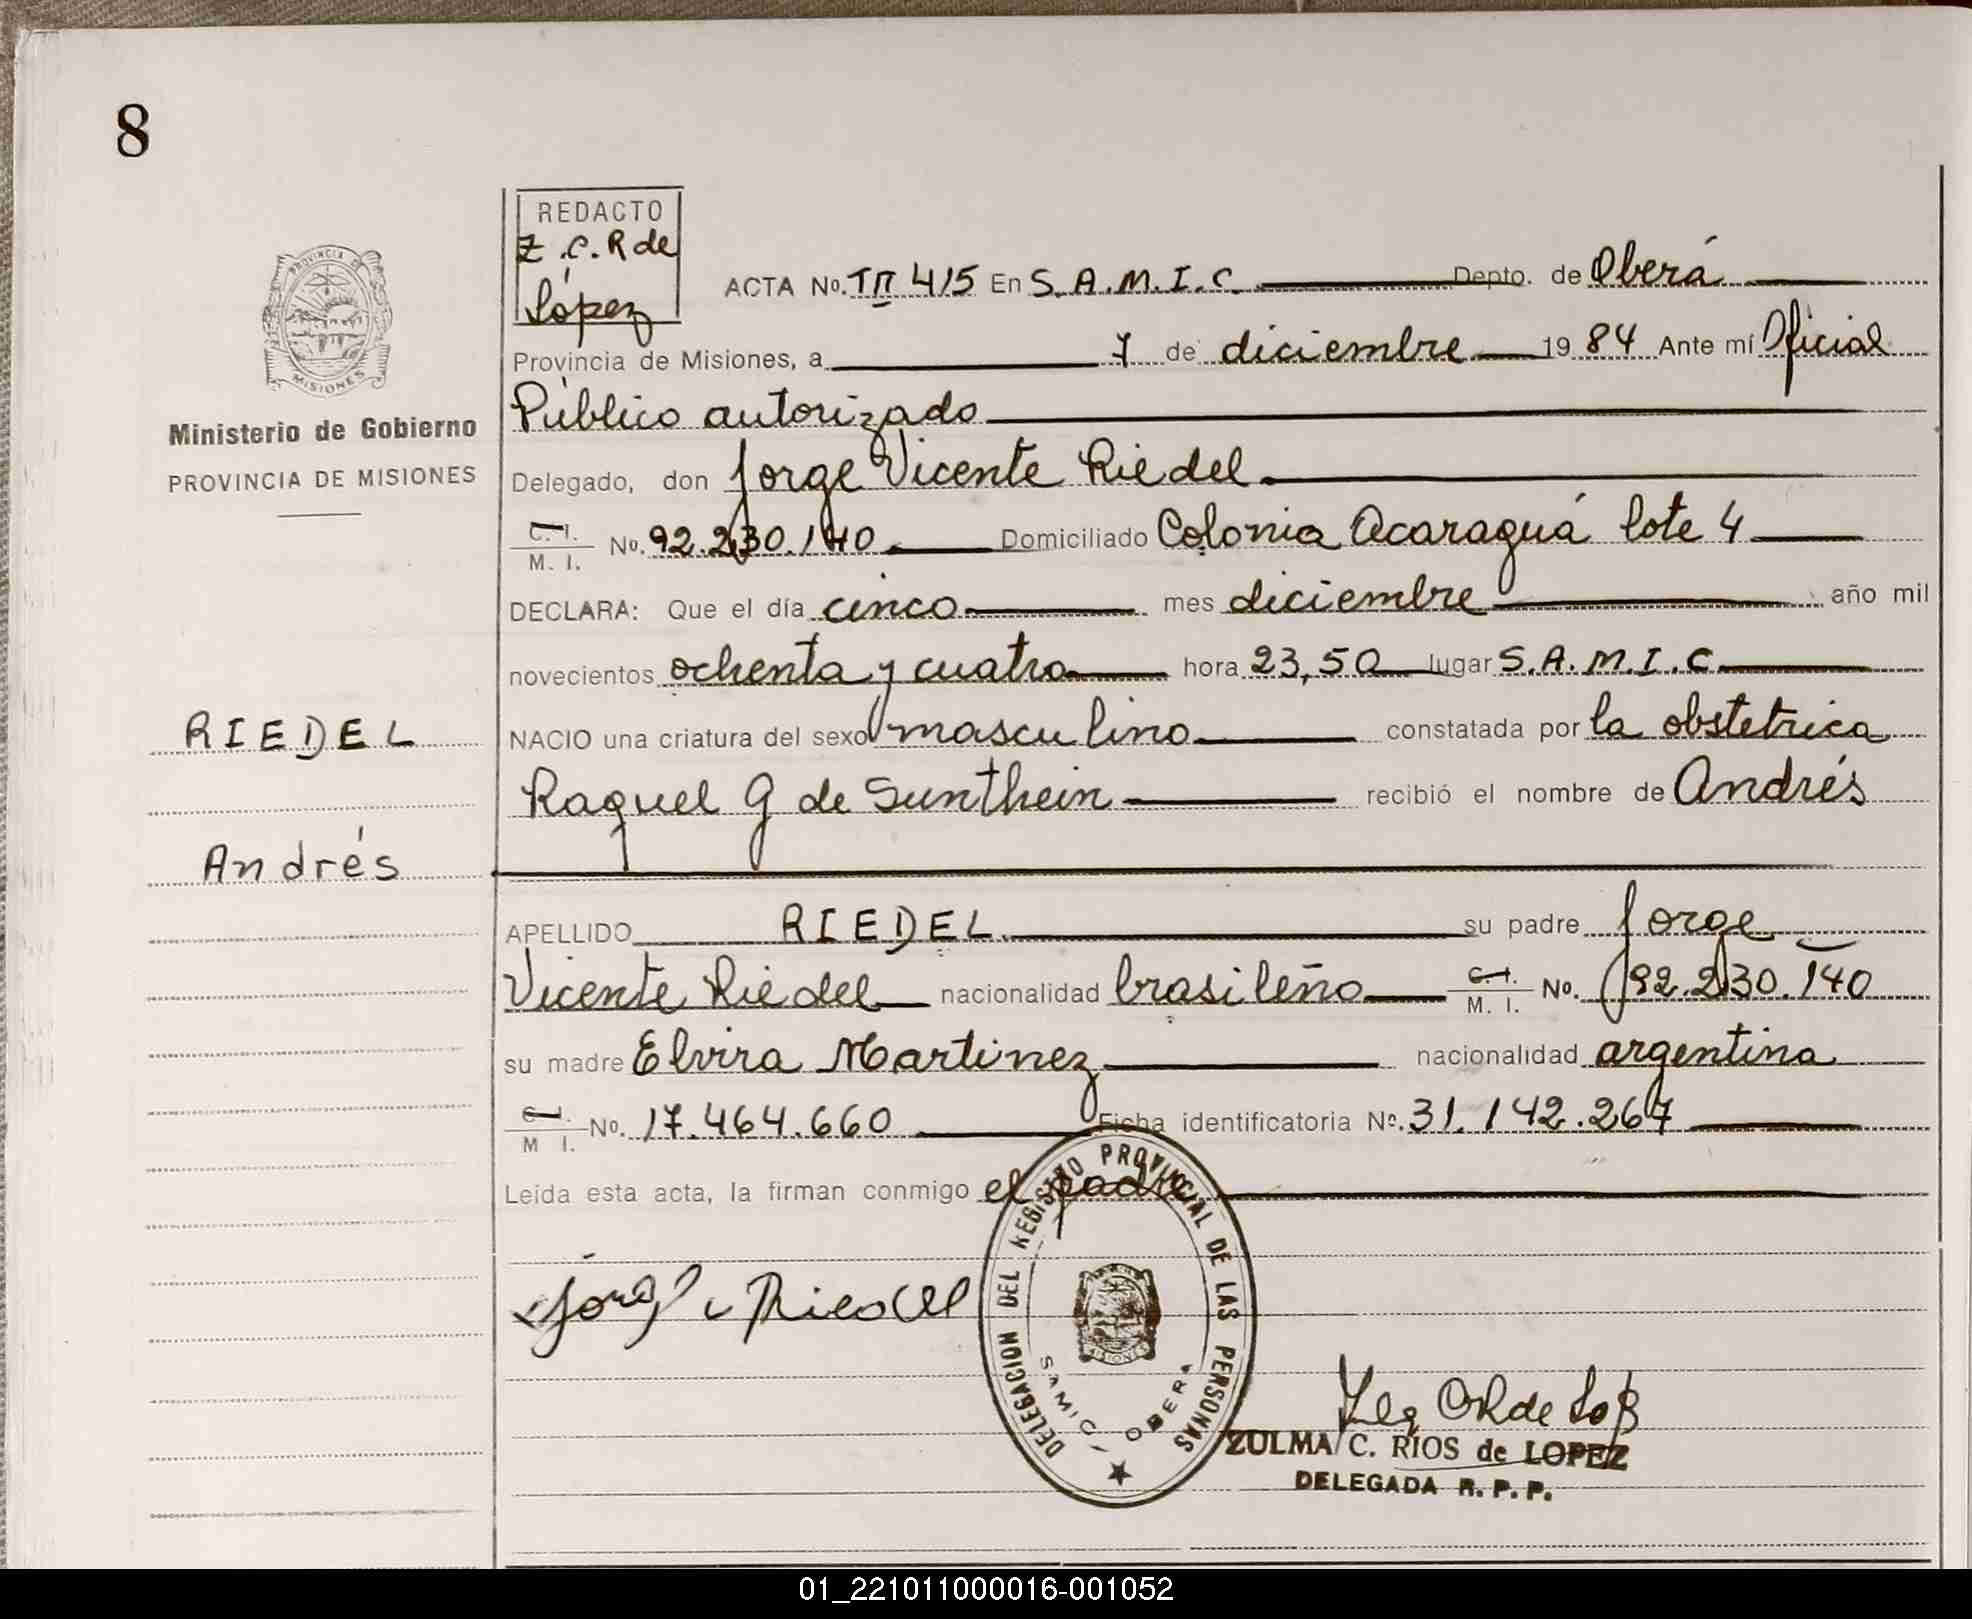 8
REDACTO
Z.C.R de
López
ACTA No. TII 415 En S.A.M.I.C. Depto. de Oberá
Provincia de Misiones, a 7 de diciembre 1984 Ante mí Oficial
Público autorizado
PROVINCIA DE
MISIONES
Ministerio de Gobierno
PROVINCIA DE MISIONES
Delegado, don Jorge Vicente Riedel
C.I.
M. I. No. 92.230.140 Domiciliado Colonia Acaraguá lote 4
DECLARA: Que el día cinco mes diciembre año mil
novecientos ochenta y cuatro hora 23,50 lugar S.A.M.I.C.
RIEDEL
NACIO una criatura del sexo masculino constatada por la obstetrica
Raquel G de Sunthein recibió el nombre de Andrés
Andrés
APELLIDO RIEDEL su padre Jorge
Vicente Riedel nacionalidad brasileño C.I. M. I. No. 92.230.140
su madre Elvira Martinez nacionalidad argentina
C.I.
M I. No. 17.464.660 Ficha identificatoria No. 31.142.267
Leída esta acta, la firman conmigo el padre
DELEGACION DEL REGISTRO PROVINCIAL DE LAS PERSONAS
SAMIC - OBERA
MISIONES
ZULMA C. RIOS de LOPEZ
DELEGADA R. P. P.
01_221011000016-001052